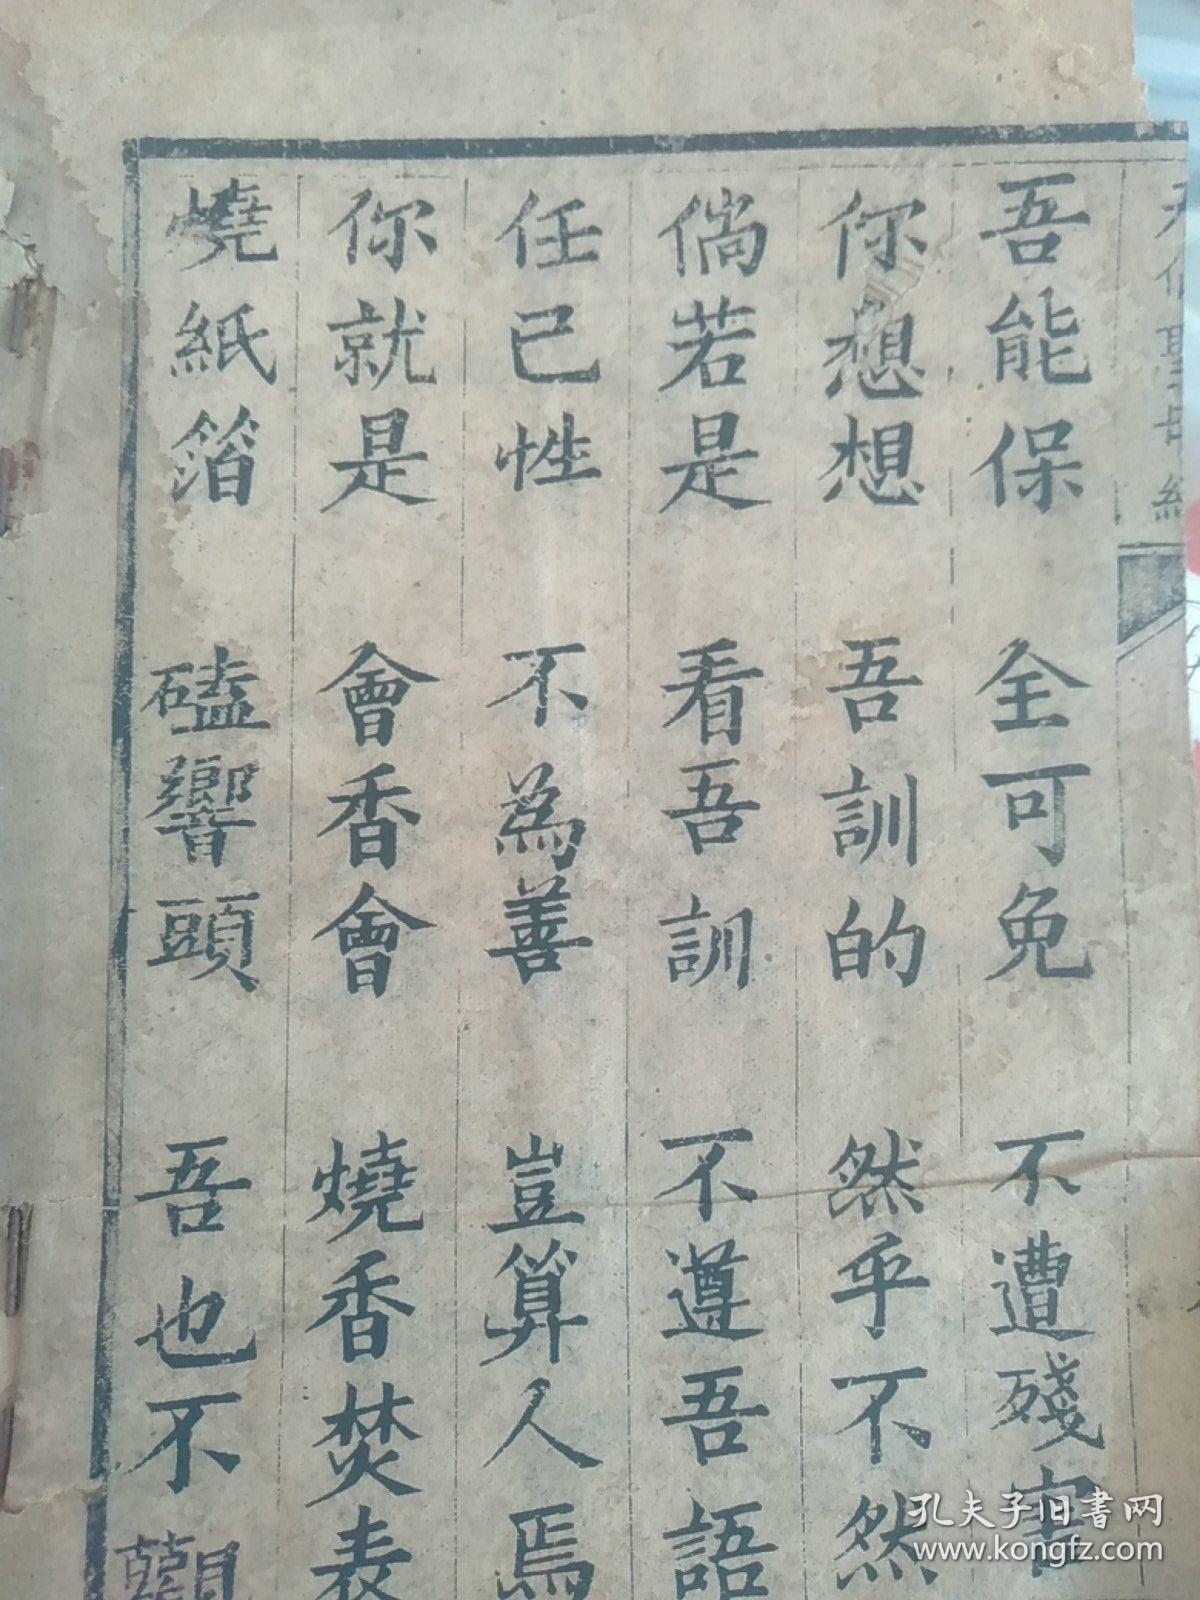 聖母經
吾能保 全可免 不遭殘害
你想想 吾訓的 然乎不然
倘若是 看吾訓 不遵吾語
任已性 不為善 豈算人焉
你就是 會香會 燒香焚表
燒紙箔 磕響頭 吾也不觀
孔夫子旧書网
www.kongfz.com